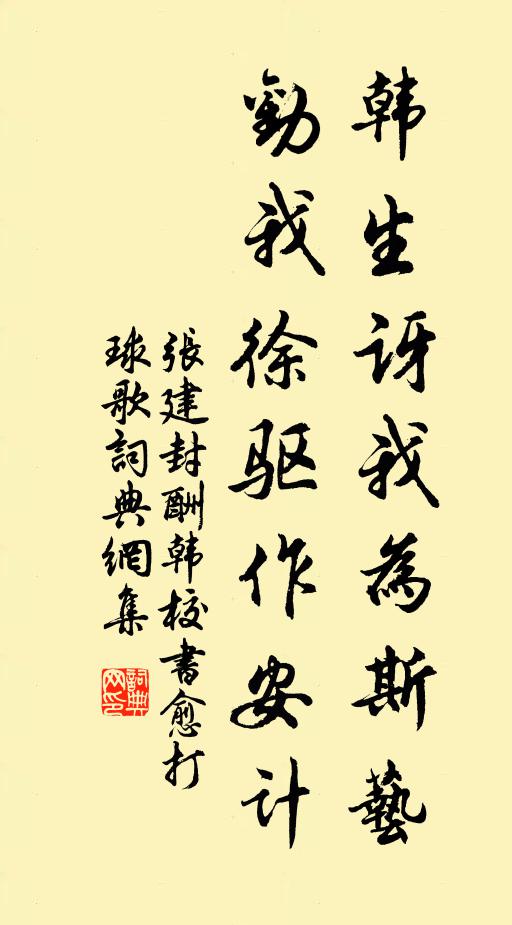 韩生讶我為斯藝
勸我徐驱作安计
張建封酬韩校書愈打
球歌詞典網集
詞典
网印